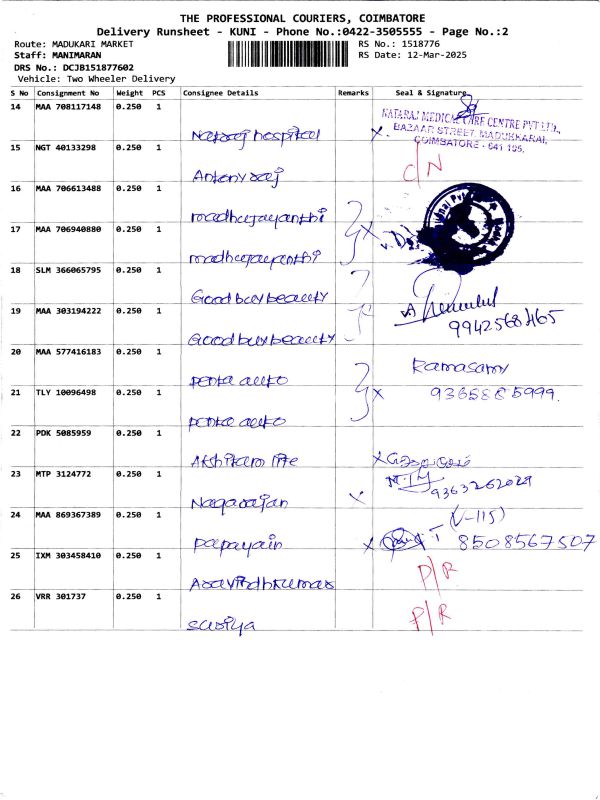 THE PROFESSIONAL COURIERS, COIMBATORE
Delivery Runsheet - KUNI - Phone No.:0422-3505555 - Page No.:2
Route: MADUKARI MARKET RS No.: 1518776
Staff: MANIMARAN RS Date: 12-Mar-2025
DRS No.: DCJB151877602
Vehicle: Two Wheeler Delivery
S No Consignment No Weight PCS Consignee Details Remarks Seal & Signature
14 MAA 708117148 0.250 1 Nataraj hospital
NATARAJ MEDICAL CARE CENTRE PVT LTD.,
BAZAAR STREET, MADUKKARAI,
COIMBATORE - 641 105.
15 NGT 40133298 0.250 1 Antony raj C/N
16 MAA 706613488 0.250 1 madhujayanthi
17 MAA 706940880 0.250 1 madhujayanthi
18 SLM 366065795 0.250 1 Good buy beauty
19 MAA 303194222 0.250 1 Good buy beauty 9942568465
20 MAA 577416183 0.250 1 penta auto Ramasamy
21 TLY 10096498 0.250 1 penta auto 9365885999.
22 PDK 5085959 0.250 1
23 MTP 3124772 0.250 1 Nagarajan 9363262029
24 MAA 869367389 0.250 1 papayain (V-115) 8508567507
25 IXM 303458410 0.250 1 Aravindhkumar D/R
26 VRR 301737 0.250 1 suriya D/R